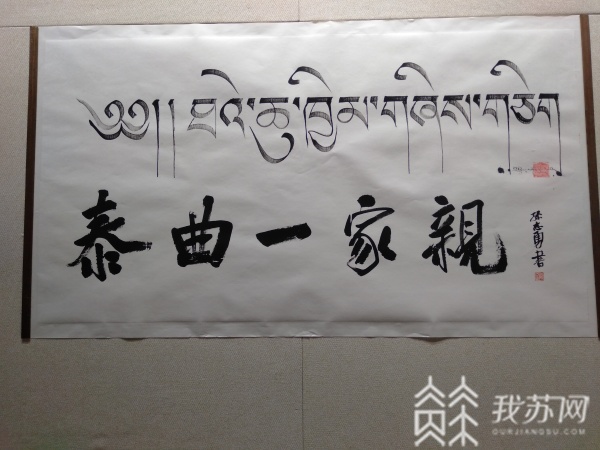 ༄༅།། ཐའེ་ཆུ་ཁྱིམ་གཞིས་གཅིག
泰曲一家親
志勇書
我苏网
OURJIANGSU.COM